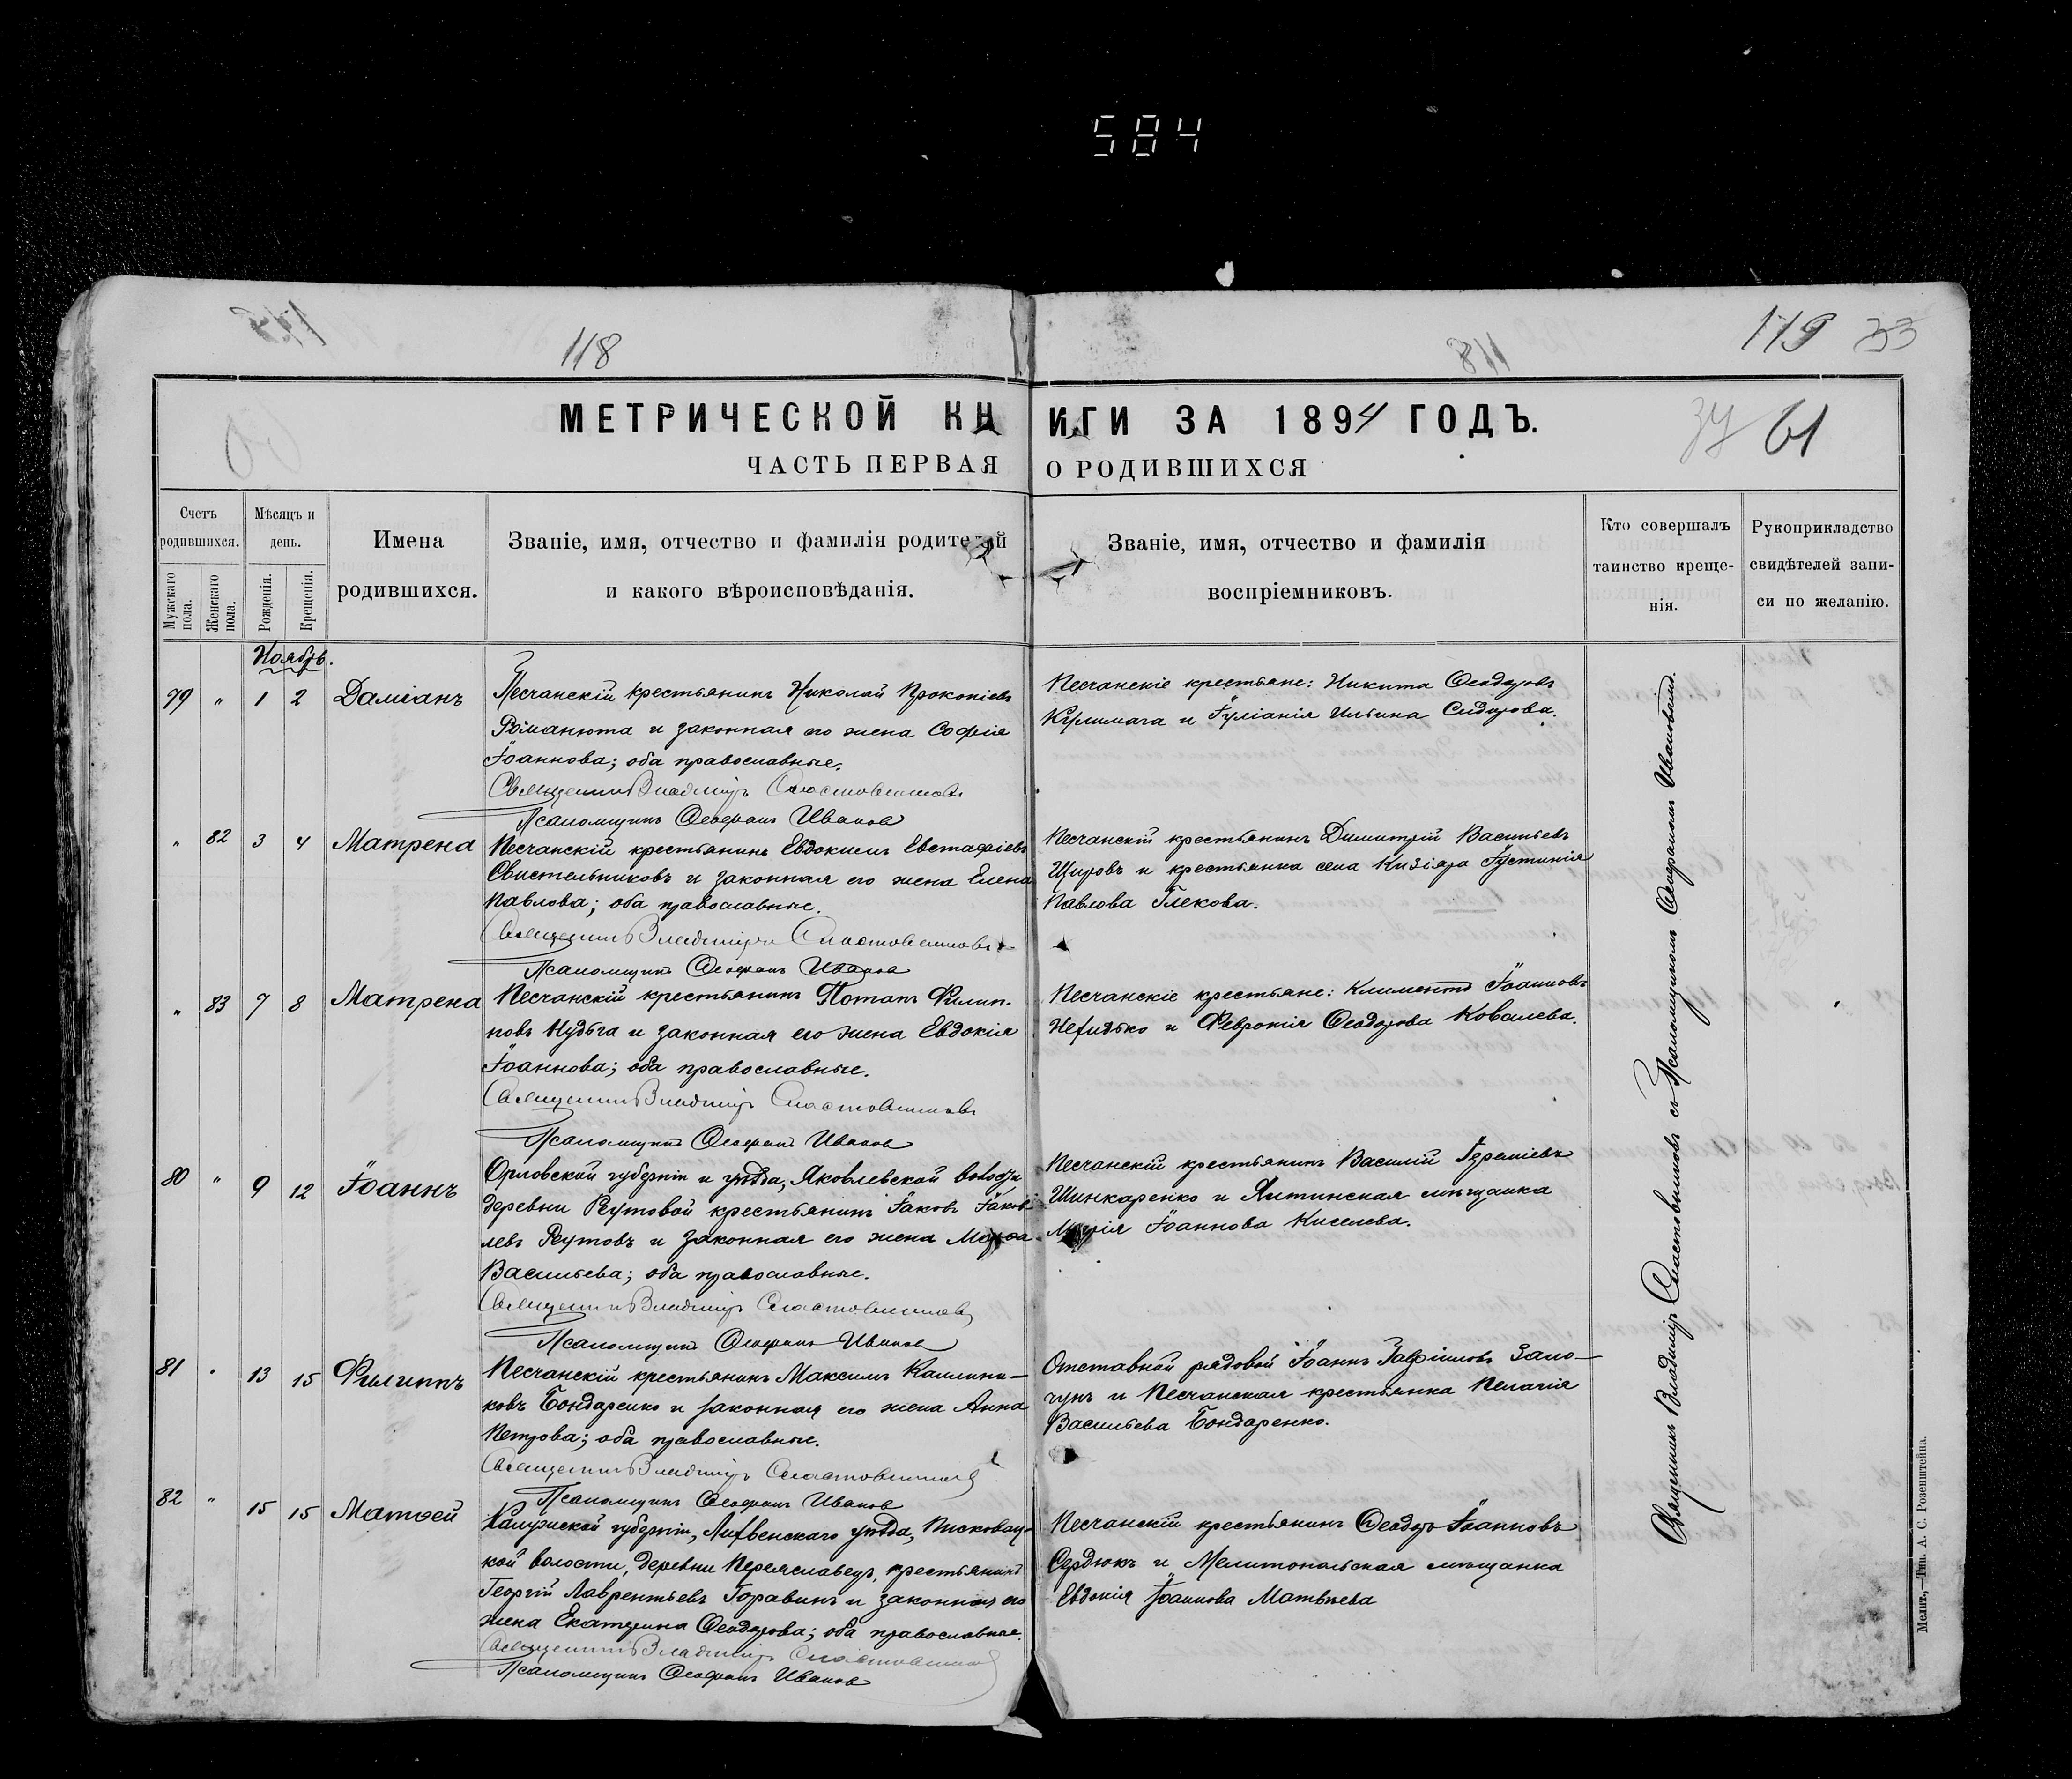 584
118
119 33
МЕТРИЧЕСКОЙ КНИГИ ЗА 1894 ГОДЪ.
37 61
ЧАСТЬ ПЕРВАЯ О РОДИВШИХСЯ
Счетъ родившихся.
Мужскаго пола.
Женскаго пола.
Мѣсяцъ и день.
Рожденія.
Крещенія.
Имена
родившихся.
Званіе, имя, отчество и фамилія родителей
и какого вѣроисповѣданія.
Званіе, имя, отчество и фамилія
воспріемниковъ.
Кто совершалъ
таинство креще-
нія.
Рукоприкладство
свидѣтелей запи-
си по желанію.
Ноябрь.
79 " 1 2 Даміанъ
Песчанскій крестьянинъ Николай Прокопіевъ
Романюта и законная его жена Софія
Іоаннова; оба православные.
Священникъ Владиміръ Сластовниковъ
Псаломщикъ Ѳеофанъ Ивановъ
Песчанскіе крестьяне: Никита Ѳеодоровъ
Кулимага и Іуліанія Ильина Сидорова.
" 82 3 4 Матрена
Песчанскій крестьянинъ Евдокимъ Евстафіевъ
Свистельниковъ и законная его жена Елена
Павлова; оба православные.
Священникъ Владиміръ Сластовниковъ
Псаломщикъ Ѳеофанъ Ивановъ
Песчанскій крестьянинъ Димитрій Васильевъ
Щировъ и крестьянка села Кизіяра Іустинія
Павлова Глекова.
" 83 7 8 Матрена
Песчанскій крестьянинъ Потапъ Филип-
повъ Нудьга и законная его жена Евдокія
Іоаннова; оба православные.
Священникъ Владиміръ Сластовниковъ
Псаломщикъ Ѳеофанъ Ивановъ
Песчанскіе крестьяне: Климентъ Іоанновъ
и Февронія Ѳеодорова Ковалева.
80 " 9 12 Іоаннъ
Орловской губерніи и уѣзда, Яковлевской волости
деревни Реутовой крестьянинъ Іаковъ Іаков-
левъ Реутовъ и законная его жена Марѳа
Васильева; оба православные.
Священникъ Владиміръ Сластовниковъ
Псаломщикъ Ѳеофанъ Ивановъ
Песчанскій крестьянинъ Василій Іереміевъ
Шинкаренко и Ялтинская мѣщанка
Марія Іоаннова Киселева.
81 " 13 15 Филиппъ
Песчанскій крестьянинъ Максимъ Каллини-
ковъ Бондаренко и законная его жена Анна
Петрова; оба православные.
Священникъ Владиміръ Сластовниковъ
Псаломщикъ Ѳеофанъ Ивановъ
Отставной рядовой Іоаннъ Гавріиловъ
и Песчанская крестьянка Пелагія
Васильева Бондаренко.
82 " 15 15 Матѳей
Калужской губерніи, Лихвенскаго уѣзда,
кой волости, деревни Переяславецъ, крестьянинъ
Георгій Лаврентьевъ Горавинъ и законная его
жена Екатерина Ѳеодорова; оба православные.
Священникъ Владиміръ Сластовниковъ
Псаломщикъ Ѳеофанъ Ивановъ
Песчанскій крестьянинъ Ѳеодоръ Іоанновъ
Сердюкъ и Мелитопольская мѣщанка
Евдокія Іоаннова Матвѣева
Священникъ Владиміръ Сластовниковъ съ Псаломщикомъ Ѳеофаномъ Ивановымъ.
Мелит.,—Тип. А. С. Розенштейна.